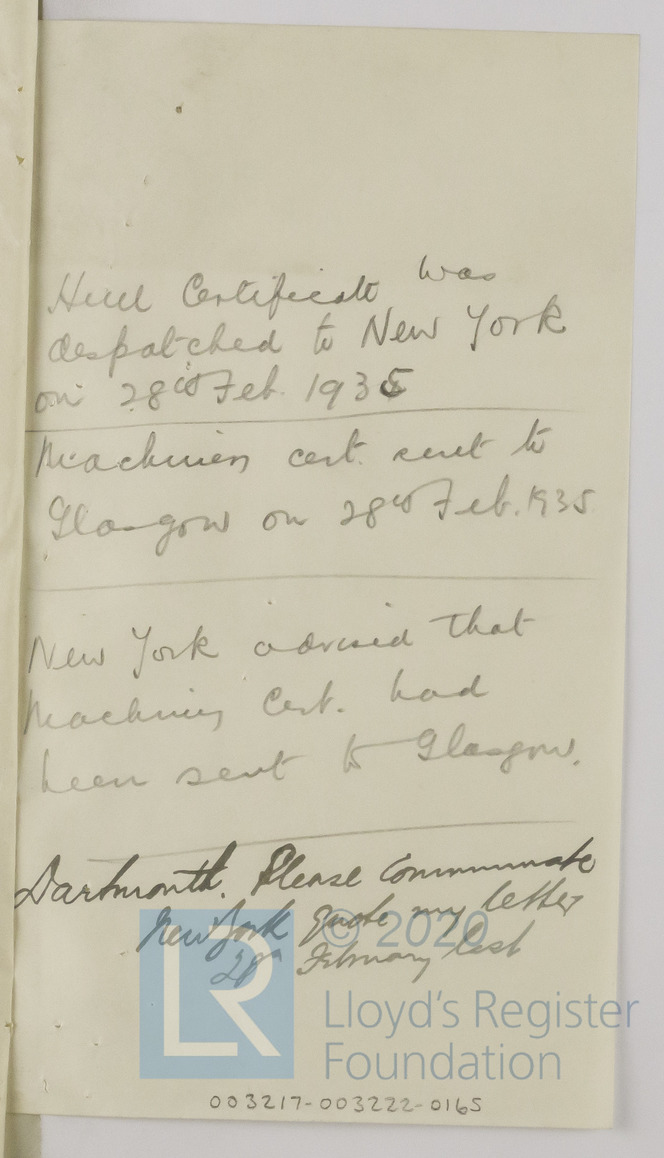 Hull Certificate was
despatched to New York
on 28th Feb. 1935
Machinery cert. sent to
Glasgow on 28th Feb. 1935
New York advised that
Machinery Cert. had
been sent to Glasgow.
Dartmouth. Please communicate
New York quote my letter
28th February last
© 2020
LR
Lloyd's Register
Foundation
003217-003222-0165